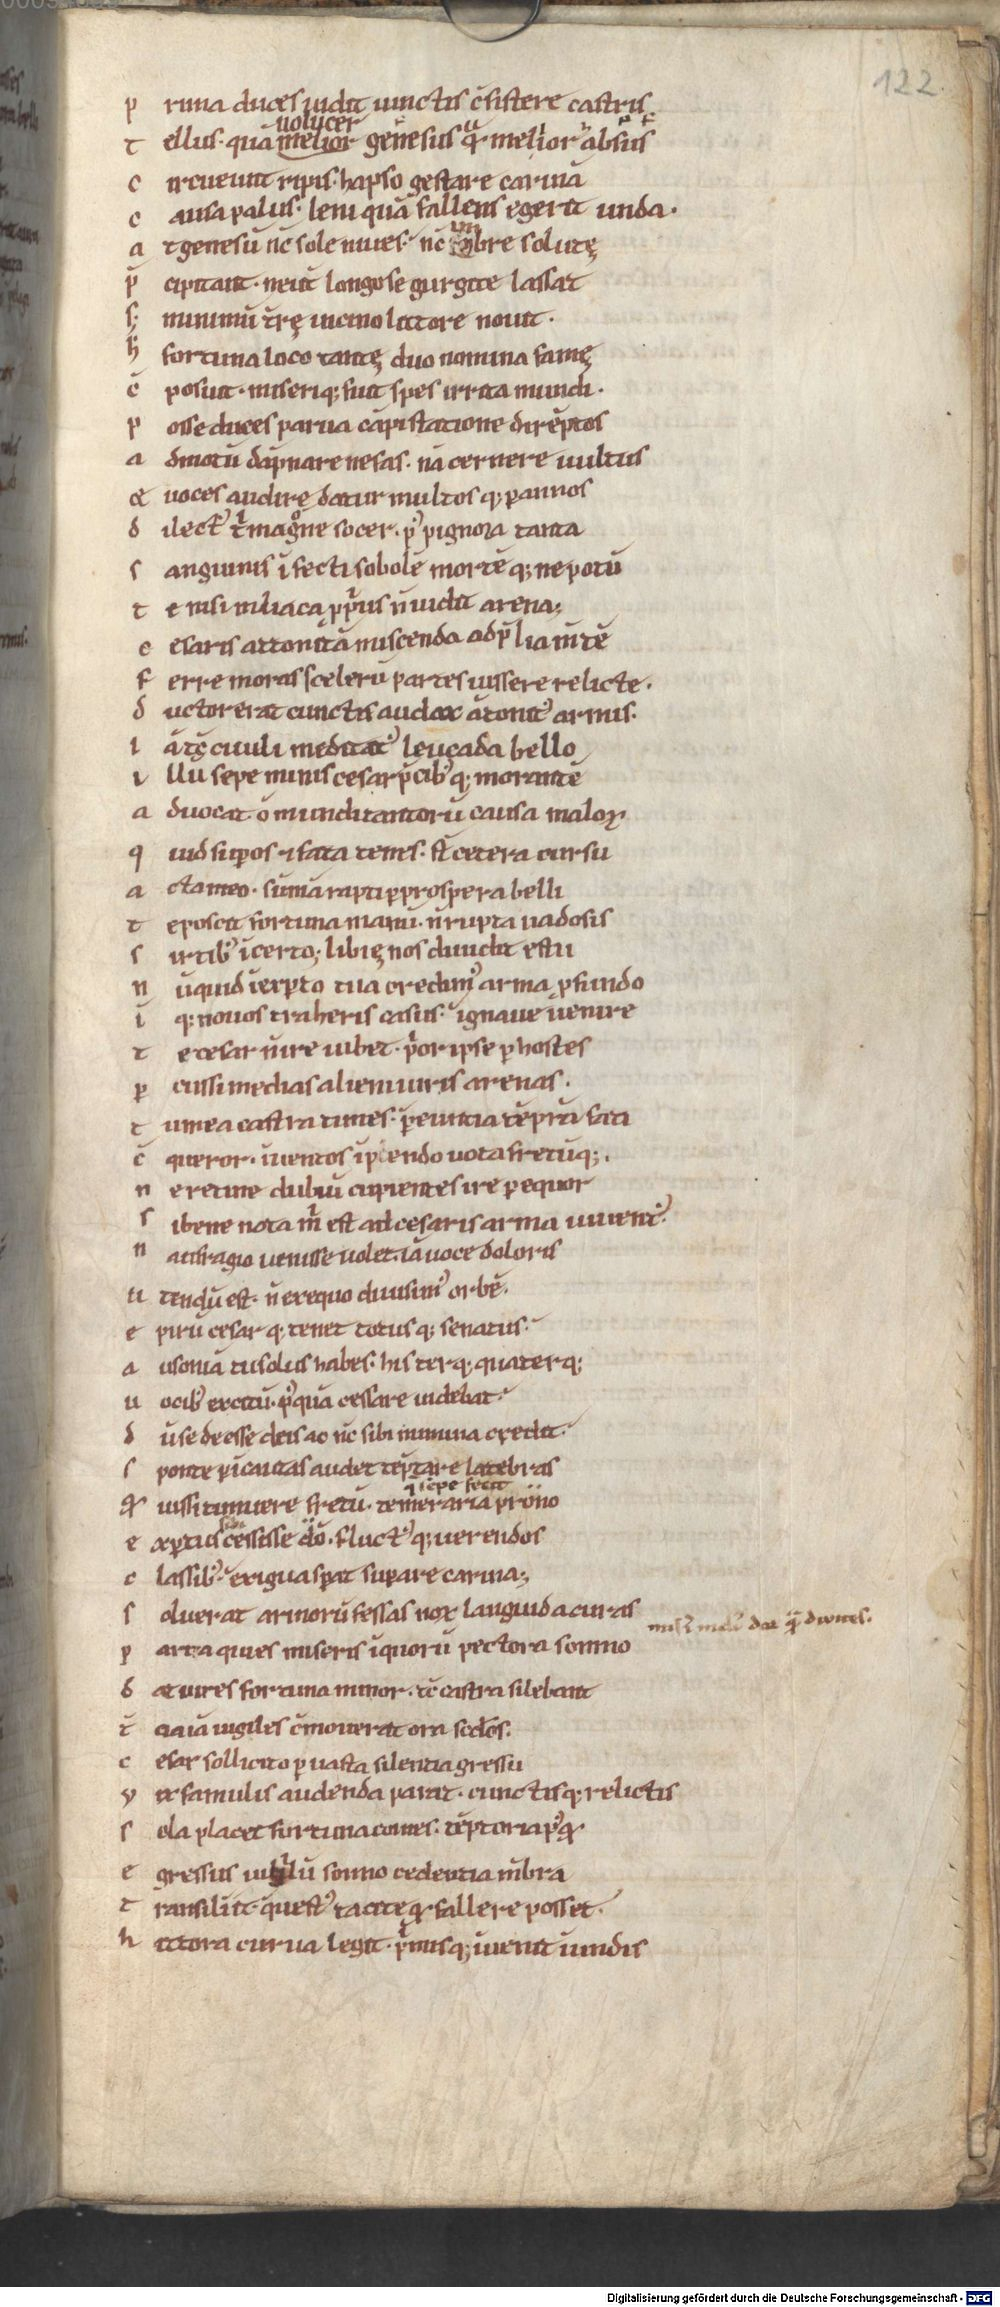 122
p rima duces uidit iunctis c̄sistere castris
uolucer
t ellus. quā melior genesus qͣ meliͥor absus
c ircueunt ripis. hapso gestare carinā
c ausa palus. leni quā fallens egerit unda.
a t genesū nc̄ sole niues. nc̄ imbre solutę
p̄ cipitant. neut̄ longo se gurgite lassat
s; minimū t̄rę uicino littore nouit.
h̄ fortuna loco tantę duo nomina famę
c̄ posuit. miseriq; fuit spes irrita mundi.
p osse duces parua cāpi statione dirēptos
a dmotū dāpnare nefas. nā cernere uultus
& uoces audire datur multos q; p annos
d ilect᷒ t̄ magͦne socer. p᷒ pignora tanta
s anguinis īfecti sobolē mortē q; nepotū
t e nisi niliaca ꝓprius n̄ uidit arena;
c esaris attonitā miscenda ad p̄lia m̄tē
f erre moras scelerū partes iussere relicte.
d uctor erat cunctis audax antoni᷒ armis.
i ā tc̄ ciuili meditat᷒ leucada bello
i llū sepe minis cesar p̄cib᷒ q; morantē
a duocat. o mundi tantorū causa maloꝝ
q uid supos & fata tenes. st̄ cetera cursu
a cta meo. sūmā rapti p prospera belli
t e poscit fortuna manū. n̄ rupta uadosis
s irtib᷒ icerto; libię nos diuidit estu
n ūquid īexpto tua credim᷒ arma ꝓfundo
i q; nouos traheris casus. ignaue uenire
t e cesar n̄ ire iubet. p̄or ipse p hostes
p cussi medias alieni iuris arenas.
t u mea castra times. p̄euntia tēpra fati
c̄ queror. iuentos iplendo uota fretūq;.
n e retine dubiū cupientes ire p equor
s i bene nota m̄ est ad cesaris arma iuuent᷒.
n aufragio uenisse uolet. iā uoce doloris
u tendū est. n̄ ex equo diuisim᷒ orbē.
e pirū cesar q; tenet totus q; senatus.
a usoniā tu solus habes. his terq; quaterq;
u ocib᷒ excitū. p᷒quā cessare uidebat.
d ū se deesse deis ac nc̄ sibi numina credit.
s ponte p īcautas audet tēptare latebras
q sepe fecit
qͩ iussi timuere fretū. temeraria prōno
e xptus cessisse dō. fluct᷒ q; uerendos
c lassib᷒. exigua spat supare carina;
s oluerat armorū fessas nox languida curas
p arta quies miseris īquorū pectora somno
d at uires fortuna minor. tc̄ castra silebant
t̄ cia iā uigiles c̄mouerat ora scdōs.
c esar sollicito p uasta silentia gressu
v ix famulis audenda parat. cunctisq; relictis
s ola placet fortuna comes. tēptoria p᷒qͣ
e gressus uigilū somno cedentia mēbra
t ransiliit. quest᷒ tacite qͩ fallere posset.
h ittora curua legit. p̄misq; iuenit ī undis
Digitalisierung gefördert durch die Deutsche Forschungsgemeinschaft - DFG